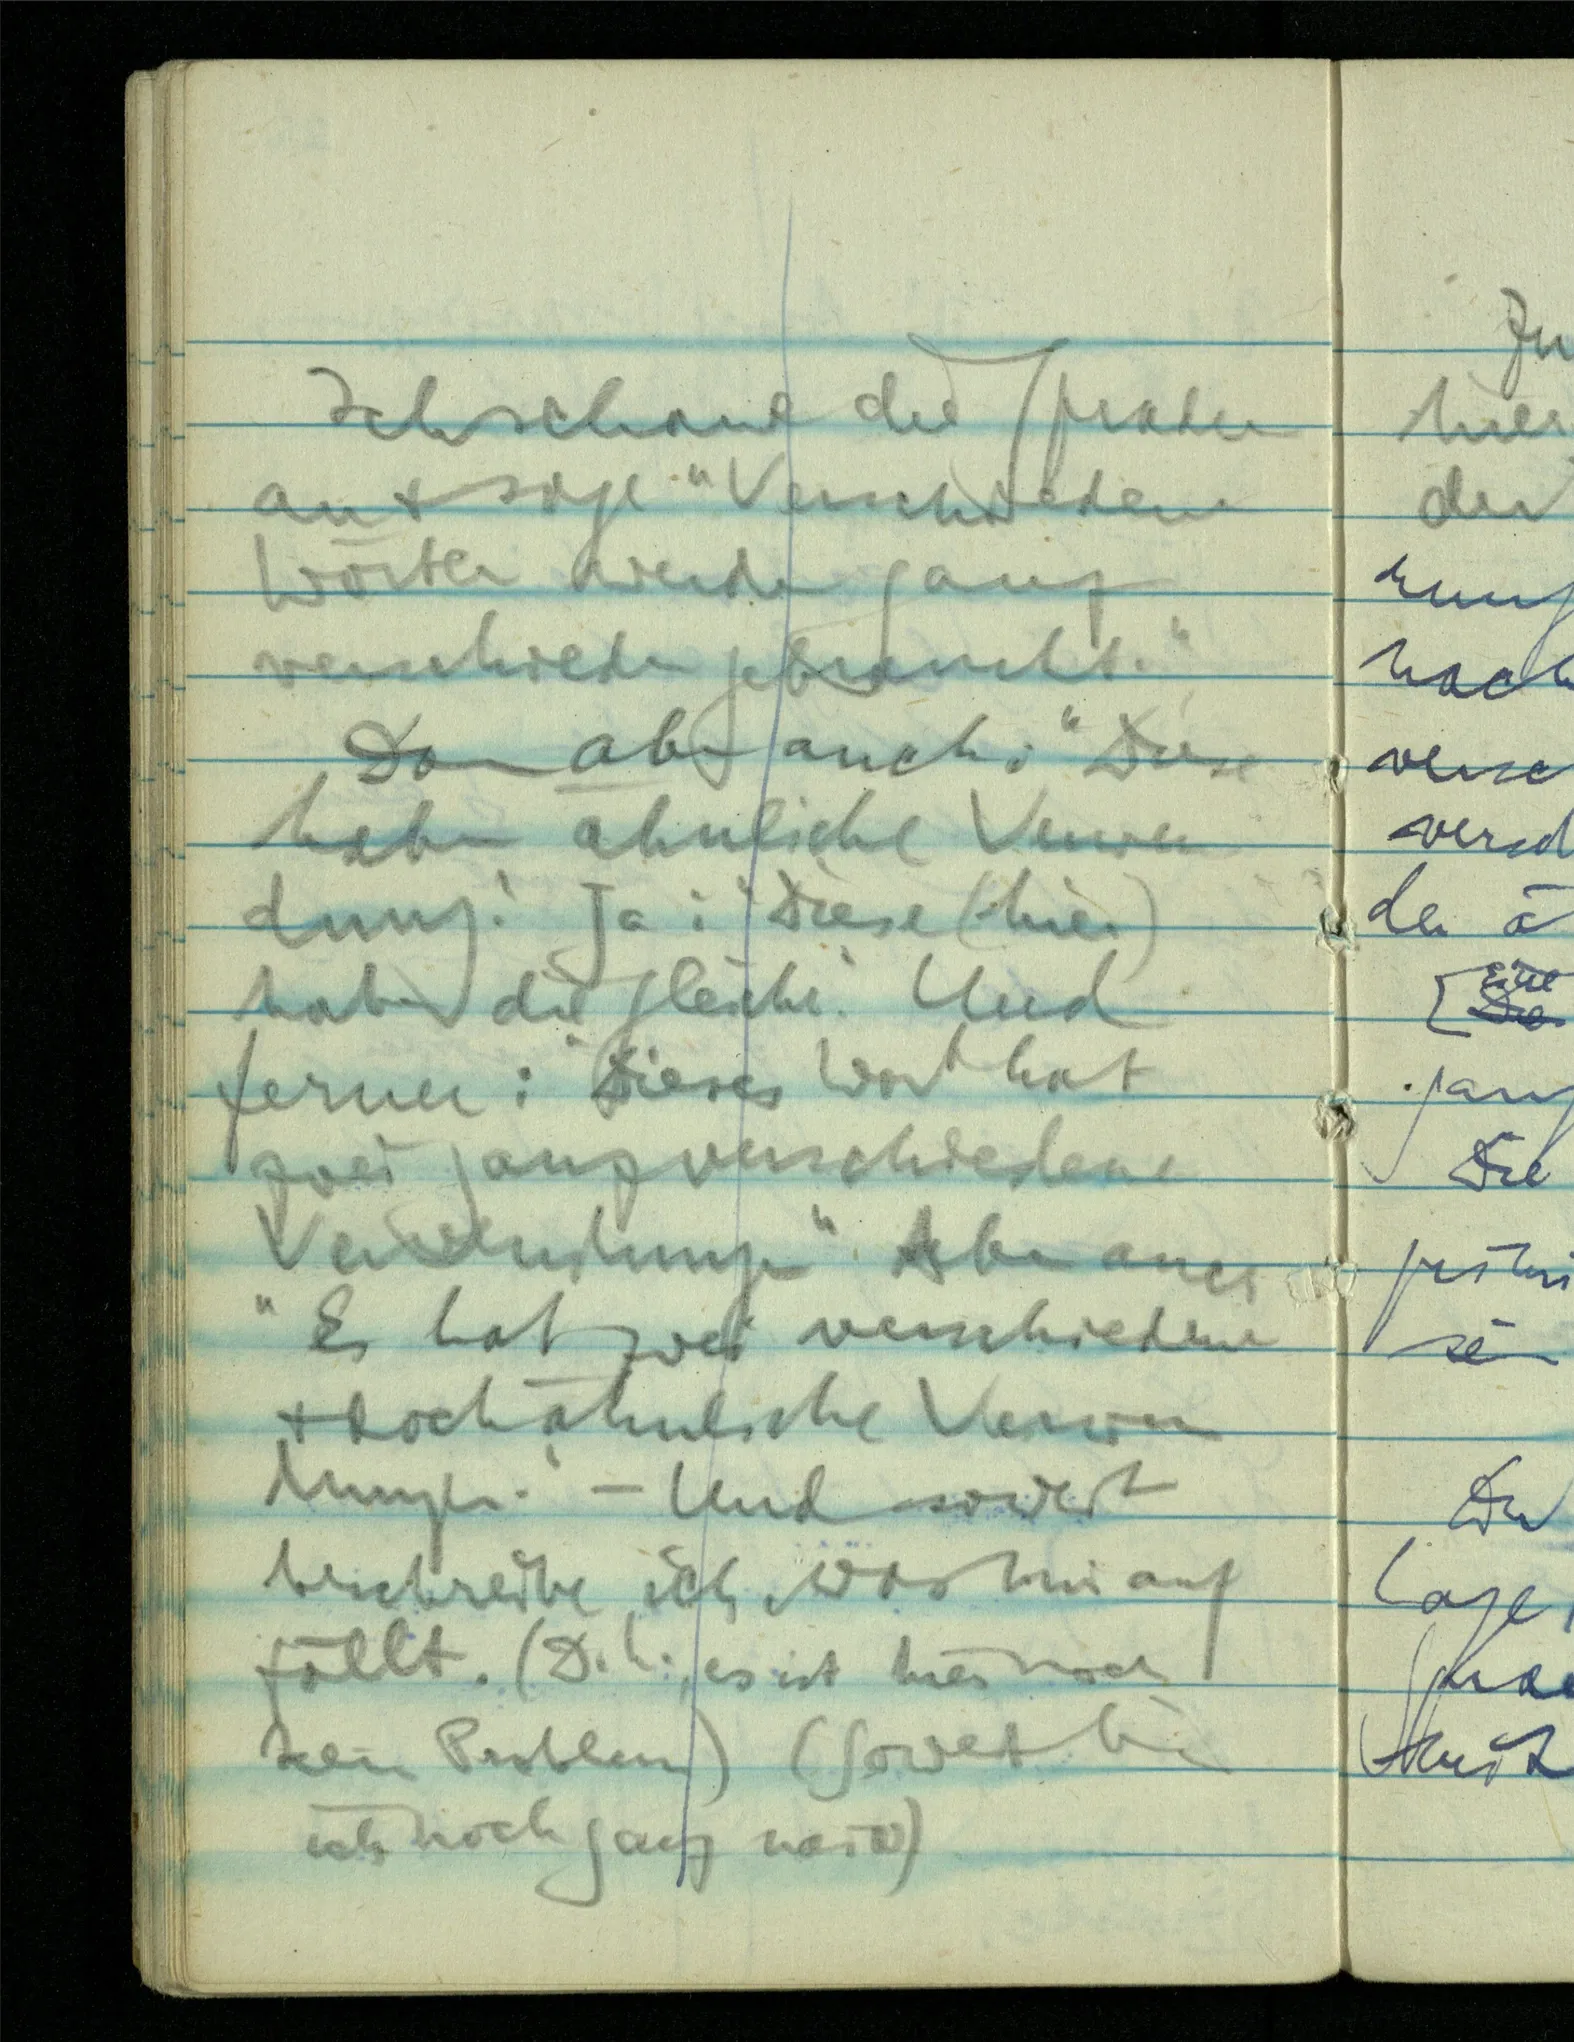 Ich schaue die Sprachen
an & sage "Verschiedene
Wörter werden ganz
verschieden gebraucht."
Dann aber auch: "Diese
haben ähnliche Verwen
dung." Ja: "Diese (hier)
haben die gleiche." Und
ferner: "Dieses Wort hat
zwei ganz verschiedene
Verwendungen" Aber auch
"Es hat zwei verschiedene
& doch ähnliche Verwen
dungen." – Und soweit
beschreibe ich, was mir auf
fällt. (D.h., es ist hier noch
kein Problem) (Soweit bin
ich noch ganz naiv)
hier
der
nach
Die
sein
Der
Lage